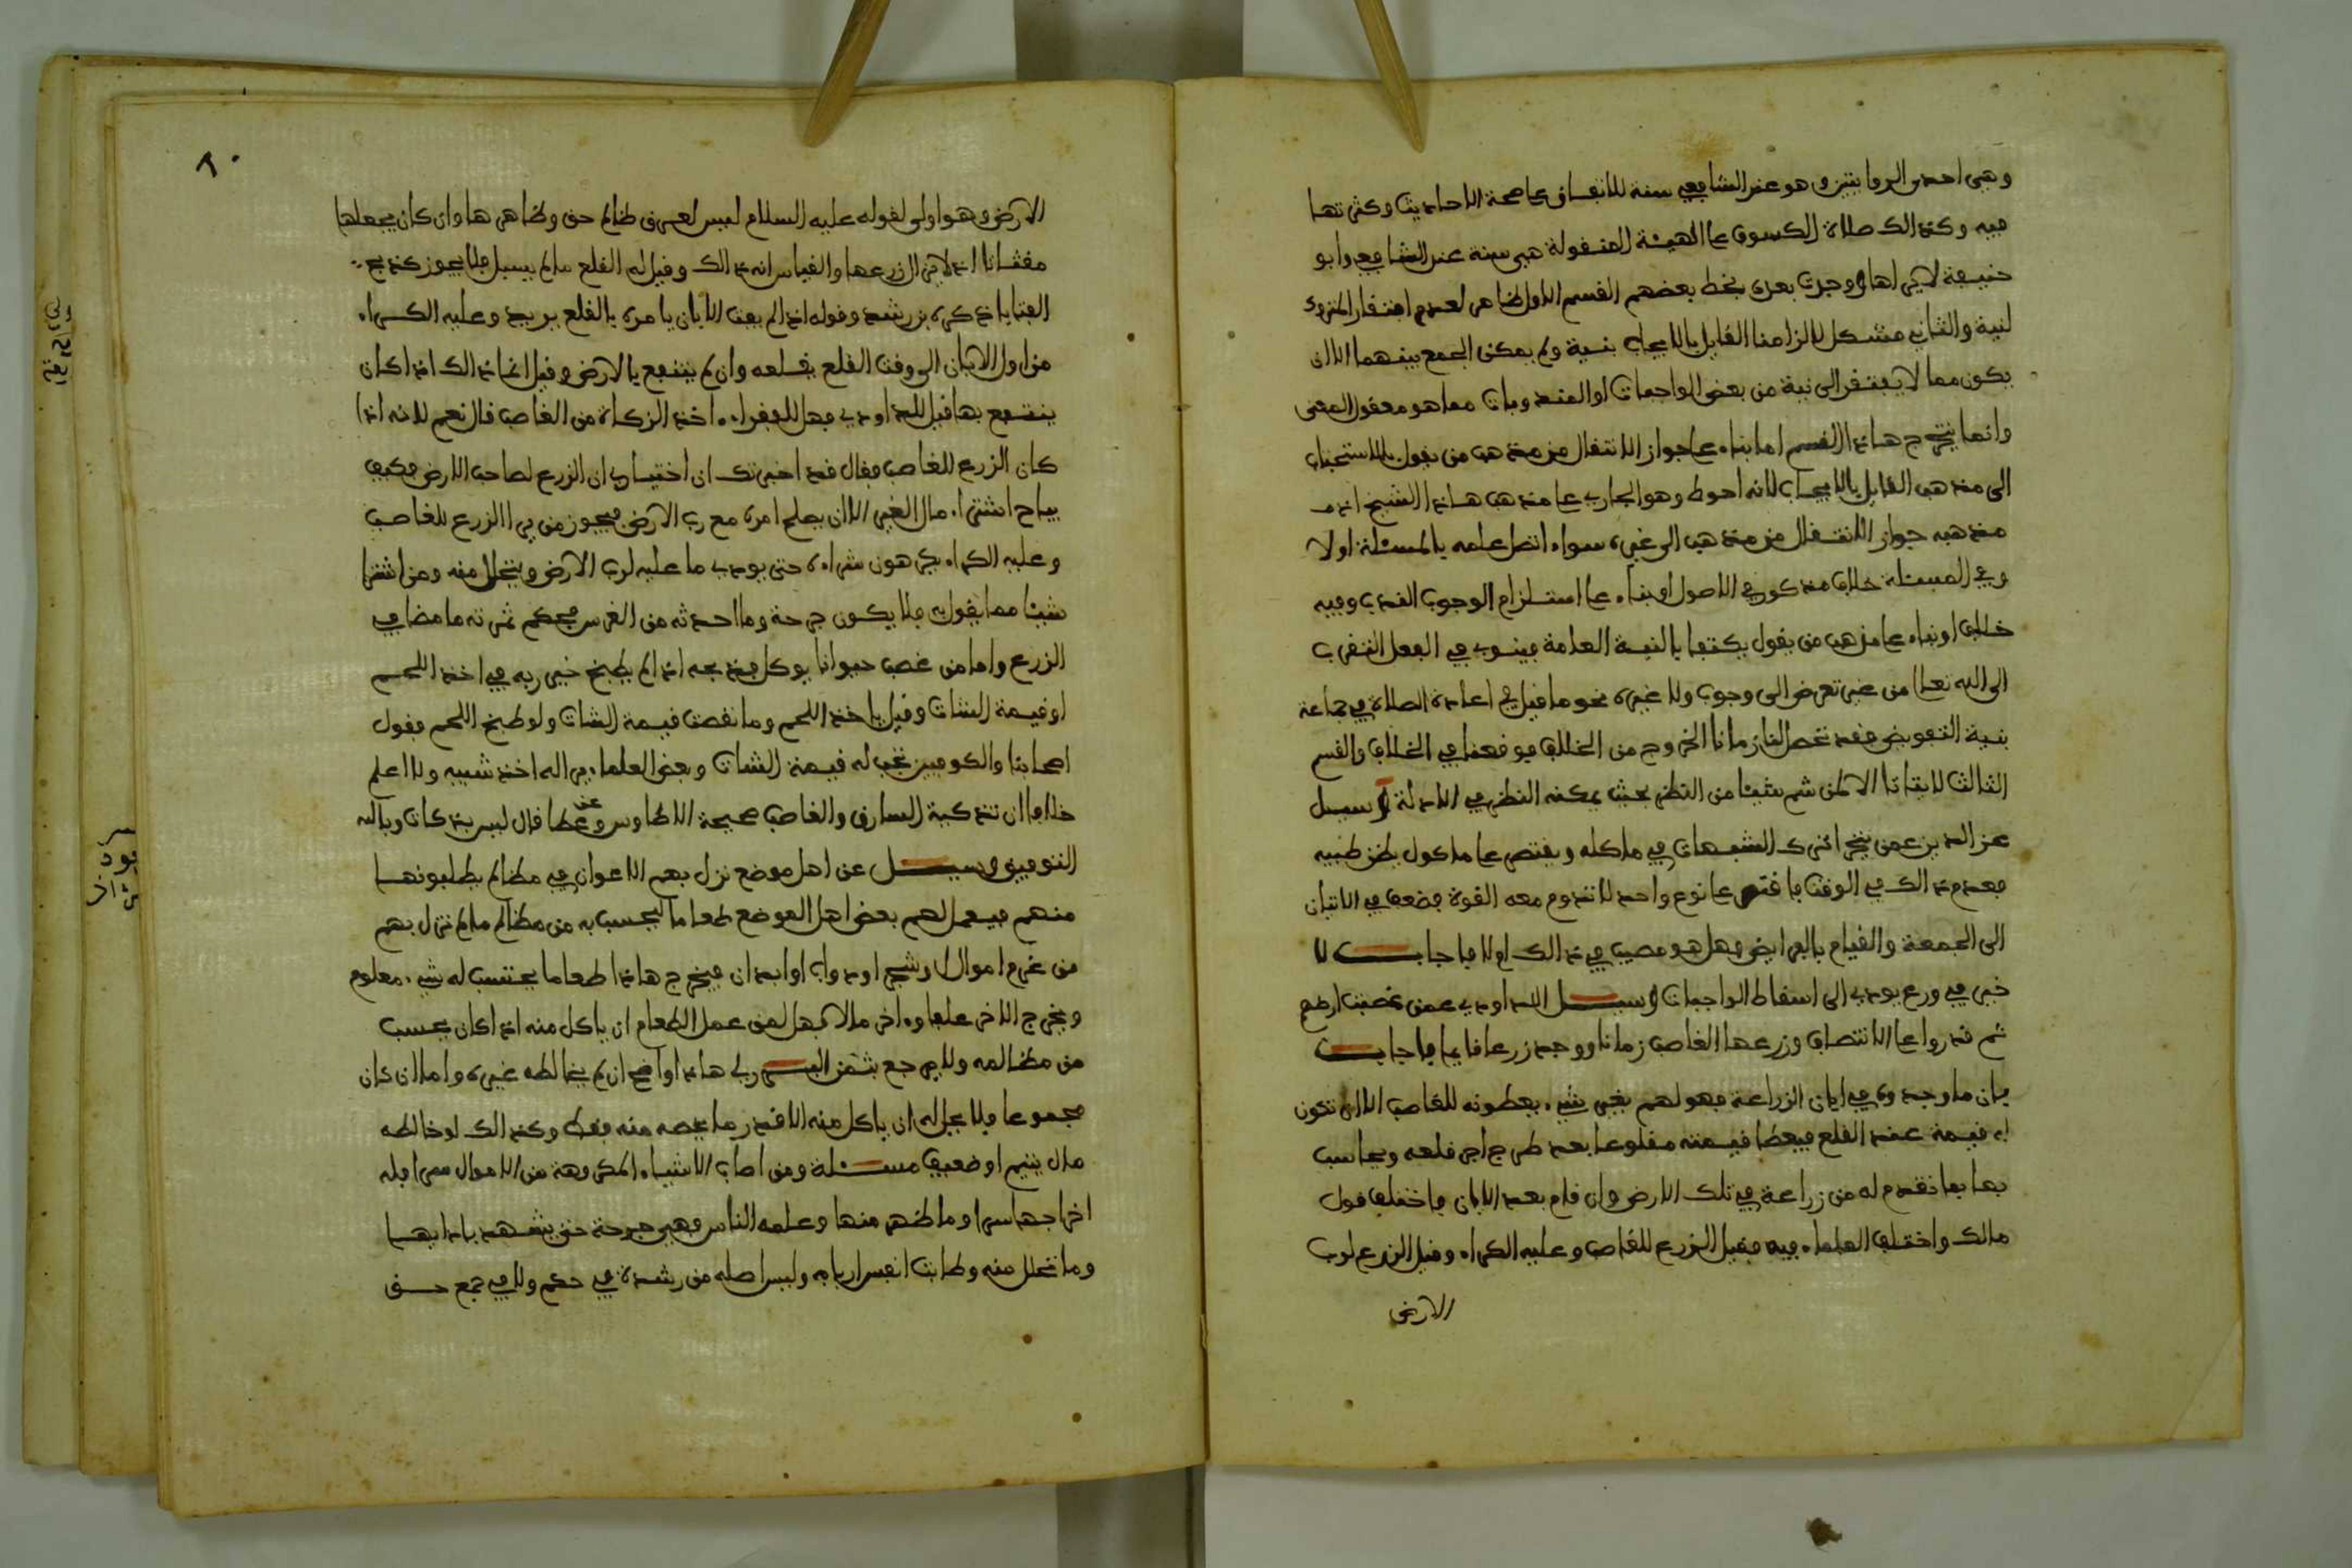 وهي احدى الروايتين وهو عند الشافعي سنة للاتفاق على صحة الاحاديث وكثرتها
فيه وكذالك صلاة الكسوف على الهيئة المنقولة هي سنة عند الشافعي وابو
حنيفة لا يراها ووجدت بعده بخط بعضهم القسم الاول ظاهر لعدم افتقار المتروك
لنية والثاني مشكل لالزامنا القايل بالايجاب بنية ولم يمكن الجمع بينهما الا ان
يكون مما لا يفتقر الى نية من بعض الواجبات او المندوبات مما هو معقول المعنى
وانما يتخرج هاذا القسم اما بناء على جواز الانتقال من مذهب من يقول بالاستحباب
الى مذهب القايل بالايجاب لانه احوط وهو الجاري على مذهب هاذا الشيخ اذ من
مذهبه جواز الانتقال من مذهب الى غيره سواء اتصل عمله بالمسئلة او لا
وفي المسئلة خلاف مذكور في الاصول او بناء على استلزام الوجوب الندب وفيه
خلاف او بناء على مذهب من يقول يكتفى بالنية العامة فينوي في الفعل التقرب
الى الله تعلى من غير تعرض الى وجوب ولا غيره نحو ما قيل في اعادة الصلاة في جماعة
بنية التفويض فقد تحصل لنا زمانا الخروج من الخلاف فوقعنا في الخلاف والقسم
الثالث لا يتاتا الا لمن شم شيئا من النظر بحيث يمكنه النظر في الادلة وسيل
عز الدين عمن يتحرا ترك الشبهات في ماكله ويقتصر على ماكول يظن طيبه
فعدم ذالك في الوقت فاقتصر على نوع واحد لا تدوم معه القوة فضعف في الاتيان
الى الجمعة والقيام بالفرايض فهل هو مصيب في ذالك ام لا فاجاب لا
خير في ورع يودي الى اسقاط الواجبات وسيل الداودي عمن غصبت ارضهم
ثم قدروا على الانتصاف وزرعها الغاصب زمانا ووجد زرعا قايما فاجاب
فان ما وجدوه في ابان الزراعة فهو لهم بغير شيء يعطونه للغاصب الا ان تكون
له قيمة عند القلع فيعطا قيمته مقلوعا بعد طرح اجر قلعه ويحاسب
بها بما تقدم له من زراعة في تلك الارض وان قام بعد الابان فاختلف قول
مالك واختلف العلماء فيه فقيل الزرع للغاصب وعليه الكراء وقيل الزرع لرب
الارض
٨٠
الارض وهو اولى لقوله عليه السلام ليس لعرق ظالم حق وظاهر ها وان كان يجعلها
مقثاتا اذ لا من الزرعها والقياس انه ذالك وقيل له القلع ما لم يسبل فلا يجوز كذبح
الفتايا ذكره بن رشد وقوله اذا لم يفت الابان يامره بالقلع يريد وعليه الكراء
من اول الابان الى وقت القلع يقلعه وان لم ينتفع بالارض وقيل انما ذالك اذا كان
ينتفع بها قيل للداودي فهل للفقراء اخذ الزكاة من الغاصب قال نعم لانه اذا
كان الزرع للغاصب فقال قد اخبرتك ان اختياري ان الزرع لصاحب الارض فكيف
يباح اشتراء مال الغير الا ان يعلم امره مع رب الارض فيجوز من يرا الزرع للغاصب
وعليه الكراء يكرهون شراءه حتى يودي ما عليه لرب الارض ويتحلل منه ومن اشترا
شيئا مما يقول به فلا يكون جرحة وما احدثه من الغرس فحكم ثمرته ما مضا في
الزرع واما من غصب حيوانا يوكل فذبحه اذا لم يطبخ خير ربه في اخذ اللحم
او قيمة الشات وقيل ياخذ اللحم وما نقصت قيمة الشات ولو طبخ اللحم فقول
اصحابنا والكوفيين تجب له قيمة الشات وبعض العلماء يرا له اخذ شييه ولا اعلم
خلافا ان تذكية السارق والغاصب صحيحة الا طاوس وعطا قال ليس بذكات وبالله
التوفيق وسيل عن اهل موضع نزل بهم الاعوان في مظالم يطلبونها
منهم فيعمل لهم بعض اهل الموضع طعاما ليحسب به من مظالم ما لم تنزل بهم
من غرم اموال او شجر او دواب او ابدان فيخرج هاذا طعاما يحتسب له شيء معلوم
ويخرج الاخر علفا واخر مالا فهل لمن عمل الطعام ان ياكل منه اذا كان يحسب
من مظالمه ولا يرجع بثمن البرزلي هاذا واضح ان لم يخالطه غيره واما ان كان
مجموعا فلا يجل له ان ياكل منه الا قدر ما يخصه منه فقط وكذالك لو خالطه
مال يتيم او ضعيف مسئلة ومن اصاب الاشياء المكروهة من الاموال سرا فله
اخراجها سرا وما ظهر منها وعلمه الناس فهي جرحة حتى يشهد بادايها
وما تحلل منه وطابت انفس اربابه وليس اصله من رشوة في حكم ولا في جمع حق